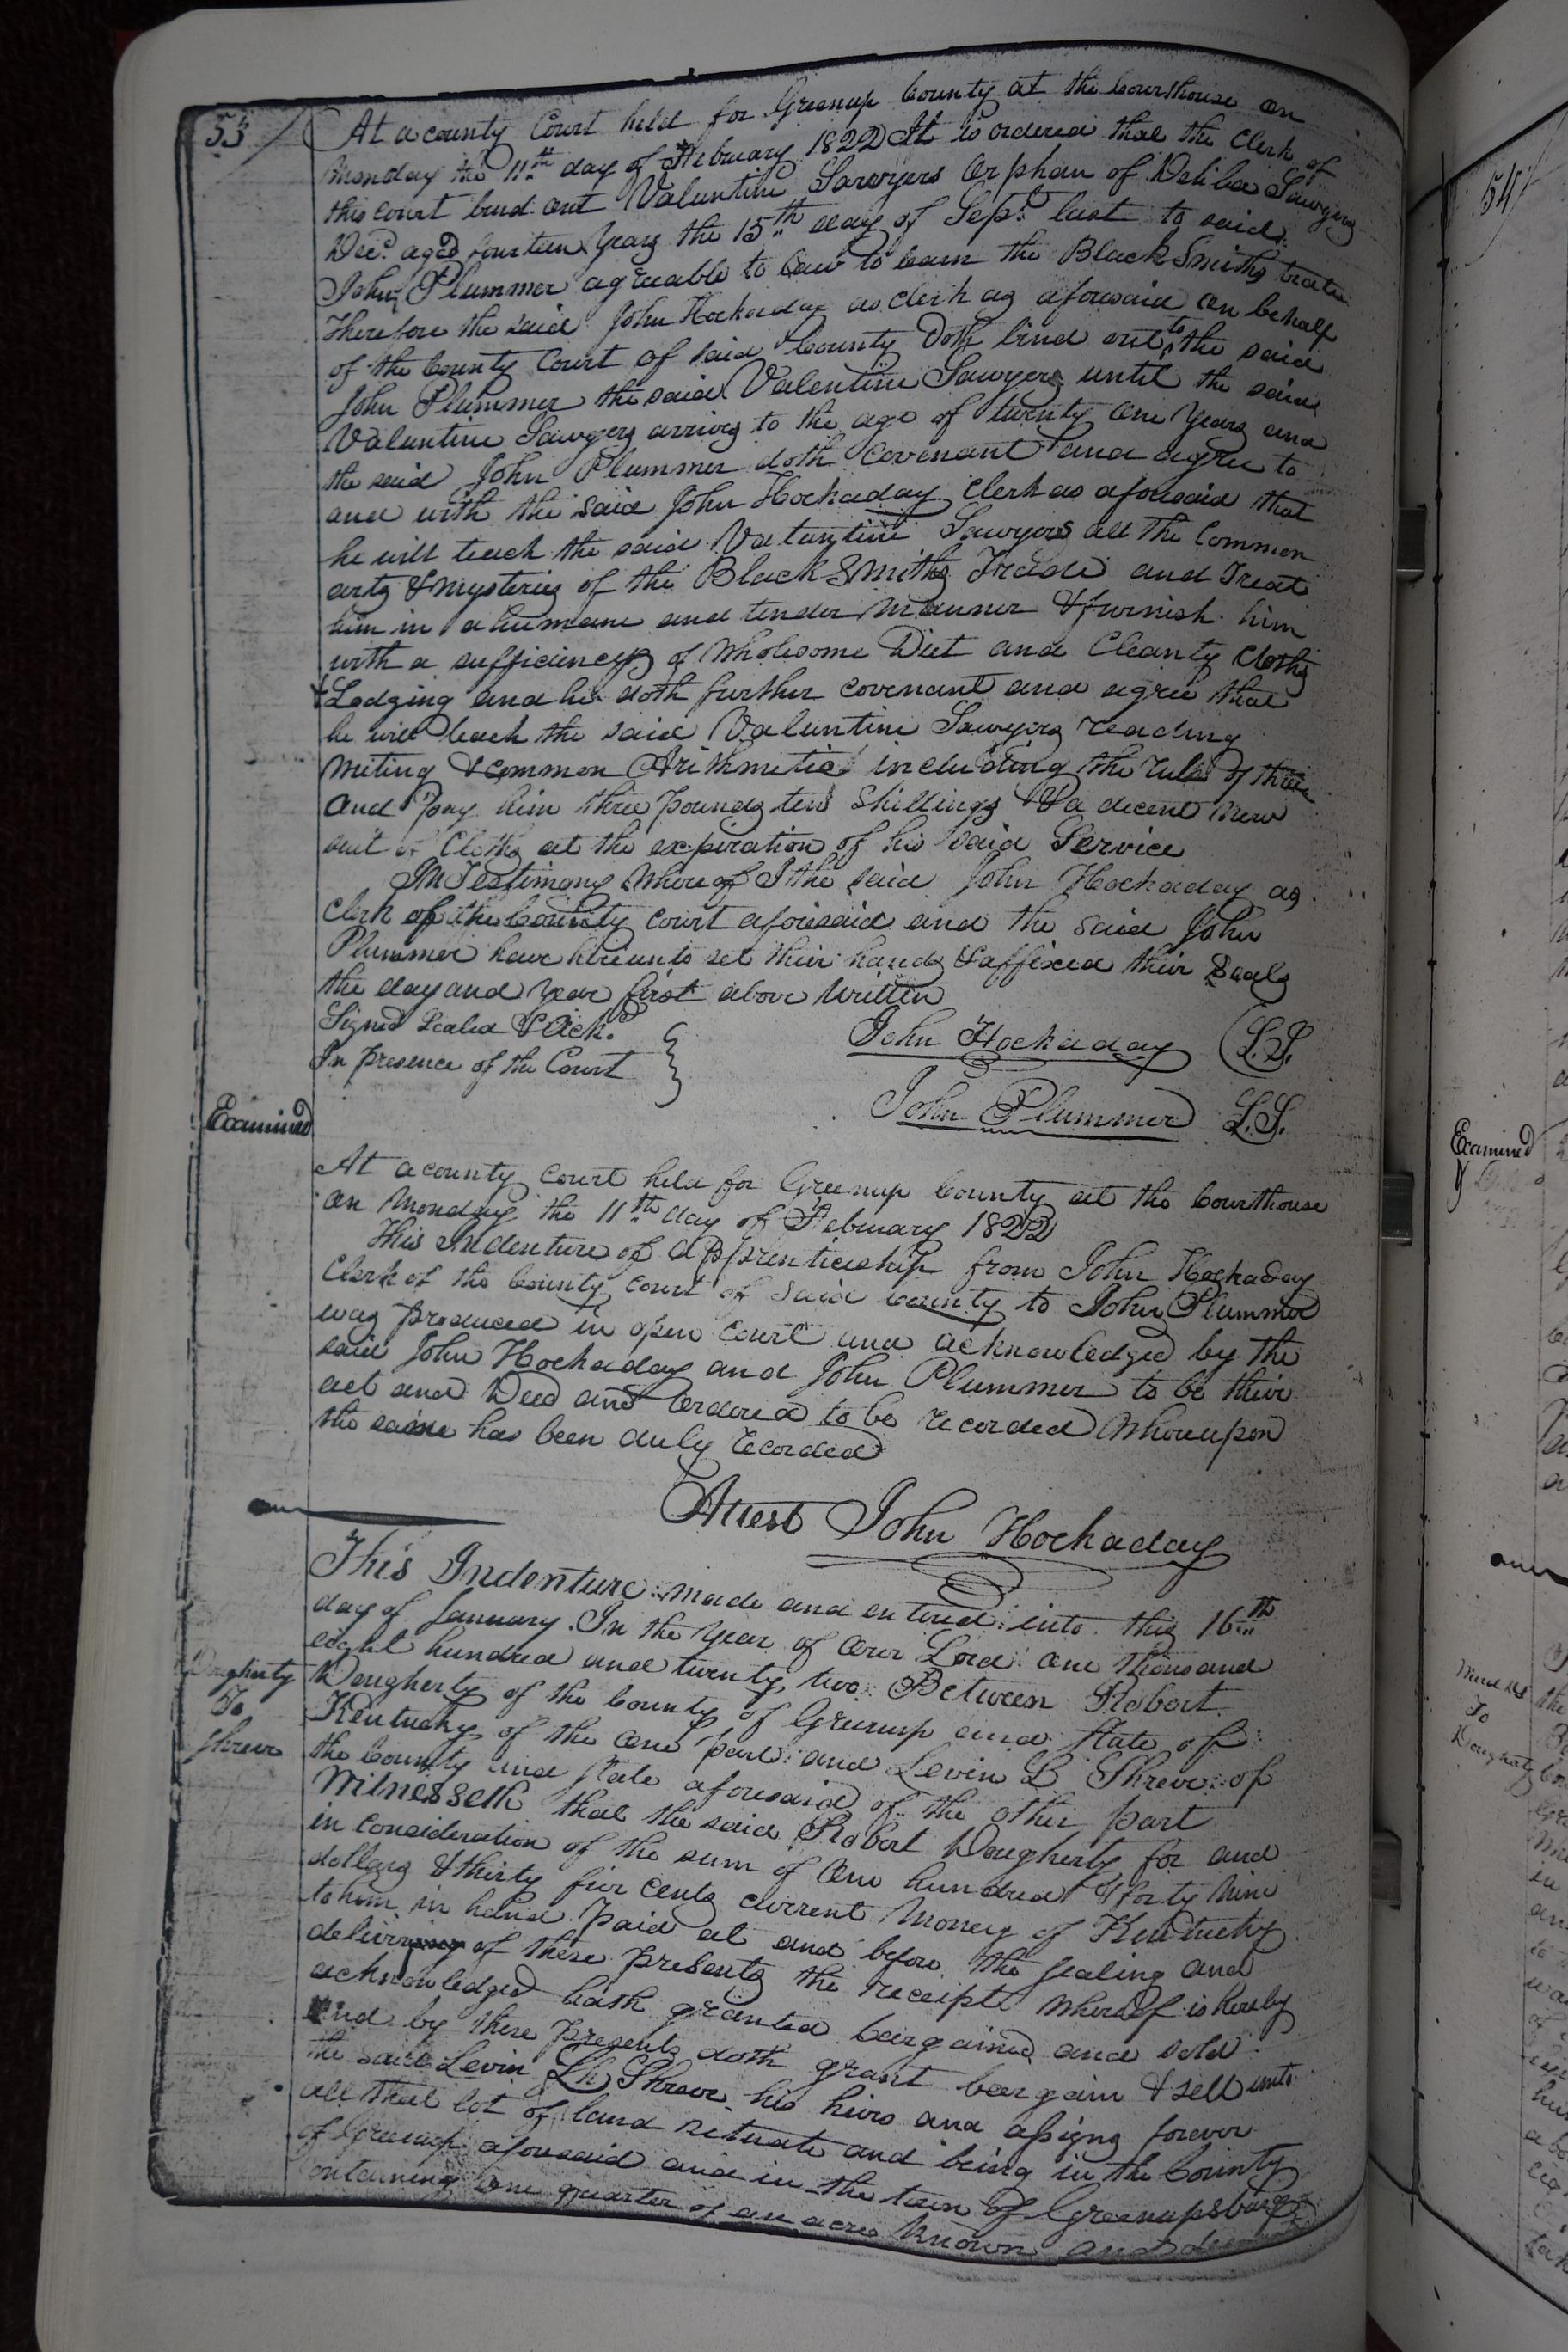 53
At a county Court held for Greenup County at the Courthouse on
Monday the 11th day of February 1822 It is ordered that the Clerk of
this Court bind out Valuntine Sawyers Orphan of Sawyers
Decd. aged fourteen years the 15th day of Sept. last to said
John Plummer agreable to Law to learn the BlackSmiths trade
Therefore the said John Hockaday as clerk as aforesaid on behalf
of the County Court of said County Doth bind out to the said
John Plummer the said Valentine Sawyers until the said
Valuntine Sawyers arrives to the age of twenty one years and
the said John Plummer doth Covenant and agree to
and with the said John Hockaday Clerk as aforesaid that
he will teach the said Valuntine Sawyers all the Common
arts & mysteries of the BlackSmiths Trade and Treat
him in a humane and tender Manner & furnish him
with a sufficiency of Wholesome Diet and Cleanly Cloths
& Lodging and he doth further covenant and agree that
he will teach the said Valuntine Sawyers reading
writing & common Arithmetic including the rule of three
and pay him three pounds ten Shillings & a decent new
suit of Cloths at the expiration of his said Service
In Testimony Whereof I the said John Hockaday as
Clerk of the County Court aforesaid and the said John
Plummer have hereunto set their hands & affixed their Seals
the day and year first above Written
Signed Sealed & Ackd.
In presence of the Court
John Hockaday (L.S.
John Plummer L.S.
Examined
At a county Court held for Greenup County at the Courthouse
on Monday the 11th day of February 1822
This Indenture of apprenticeship from John Hockaday
Clerk of the County Court of said County to John Plummer
was produced in open Court and acknowledged by the
said John Hockaday and John Plummer to be their
act and Deed and Ordered to be recorded Whereupon
the same has been duly recorded
Attest John Hockaday
Dougherty
To
Shreve
This Indenture made and entered into this 16th
day of January In the Year of Our Lord One thousand
eight hundred and twenty two Between Robert
Dougherty of the County of Greenup and State of
Kentucky of the One part and Levin L Shreve of
the County and State aforesaid of the other part
Witnesseth that the said Robert Dougherty for and
in Consideration of the sum of One hundred & forty nine
dollars & thirty five cents current Money of Kentucky
to him in hand Paid at and before the sealing and
delivering of these Presents the receipt whereof is hereby
acknowledged hath granted bargained and sold
and by these presents doth grant bargain & sell unto
the said Levin Shreve his heirs and assigns forever
all that lot of land situate and being in the County
of Greenup aforesaid and in the town of Greenupsburg
containing one quarter of an acre known and
54
Examined
To
Dougherty